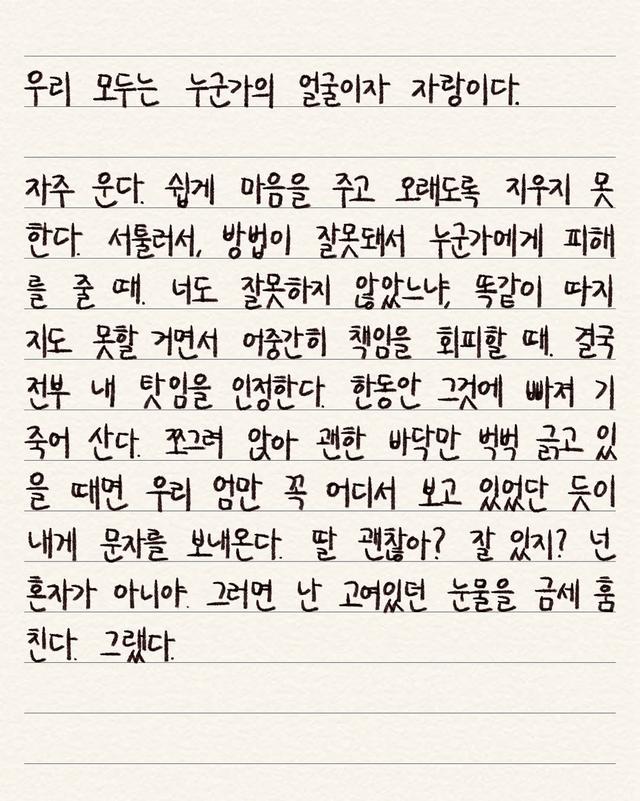 우리 모두는 누군가의 얼굴이자 자랑이다.
자주 운다. 쉽게 마음을 주고 오래도록 지우지 못
한다. 서툴러서, 방법이 잘못돼서 누군가에게 피해
를 줄 때. 너도 잘못하지 않았느냐, 똑같이 따지
지도 못할 거면서 어중간히 책임을 회피할 때. 결국
전부 내 탓임을 인정한다. 한동안 그것에 빠져 기
죽어 산다. 쪼그려 앉아 괜한 바닥만 벅벅 긁고 있
을 때면 우리 엄만 꼭 어디서 보고 있었단 듯이
내게 문자를 보내온다. 딸 괜찮아? 잘 있지? 넌
혼자가 아니야. 그러면 난 고여있던 눈물을 금세 훔
친다. 그랬다.